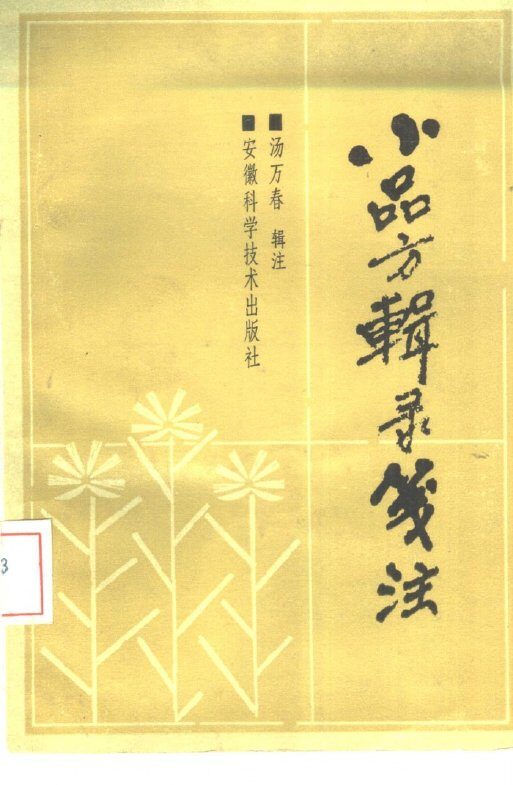 小品方輯录笺注
汤万春 辑注
安徽科学技术出版社
3